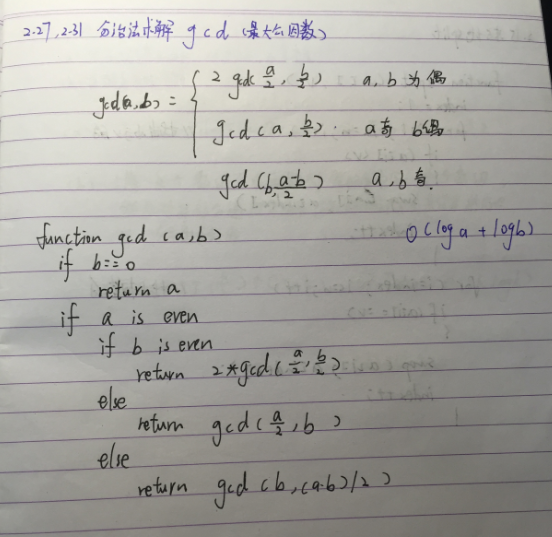 2.27, 2.31 分治法求解 gcd (最大公因数)
gcd(a,b) = { 2 gcd(a/2, b/2) a,b为偶
gcd(a, b/2). a奇 b偶
gcd(b, a-b/2) a,b奇.
function gcd (a,b) O(log a + log b)
if b==0
return a
if a is even
if b is even
return 2*gcd(a/2, b/2)
else
return gcd(a/2, b)
else
return gcd (b, (a-b)/2)